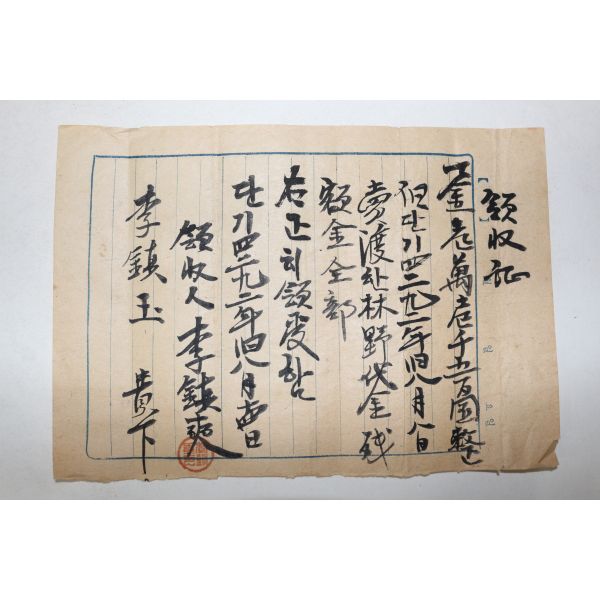 領收証
一金壱萬壱千五百圜整
但단기四二九二年旧八月八日
賣渡한林野代金残
額金全部
右正히領受함
단기四二九二年旧八月 日
領收人 李鎮
李鎮玉 貴下